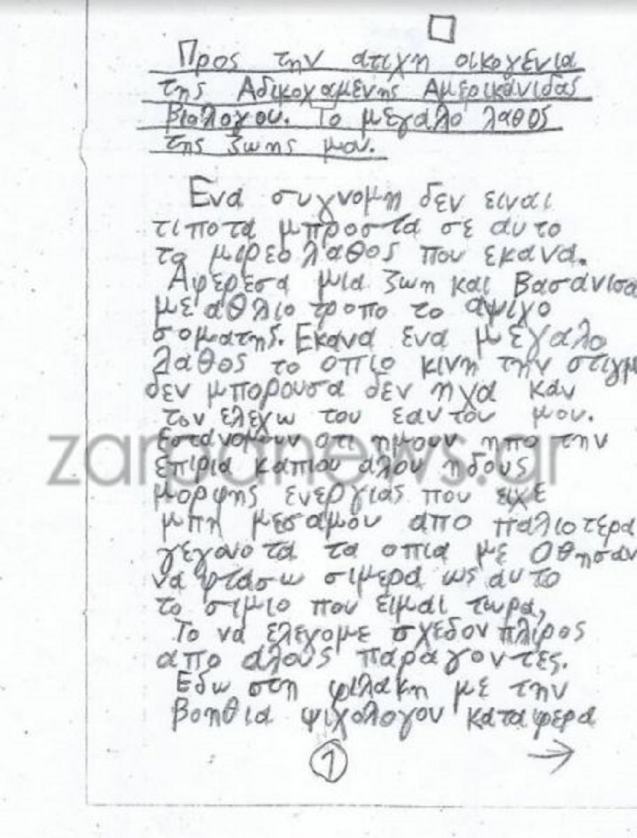 Προς την ατιχη οικογενια
της Αδικοχαμενης Αμερικανιδας
βιολογου. Το μεγαλο λαθος
της ζωης μου.
Ενα συγνομη δεν ειναι
τιποτα μπροστα σε αυτο
το μιρεο λαθος που εκανα.
Αφερεσα μια ζωη και βασανισα
με αθλιο τροπο το αψιχο
σοματης. Εκανα ενα μεγαλο
λαθος το οπιο κινη την στιγμ
δεν μπορουσα δεν ηχα καν
τον ελεχω του εαυτου μου.
Εστανομουν οτι ημουν ηπο την
επιρια καπιου αλου ηδους
μορφης ενεργιας που ειχε
μπη μεσαμου απο παλιοτερα
γεγονοτα τα οπια με οθησαν
να φτασω σιμερα ως αυτο
το σιμιο που ειμαι τωρα,
Το να ελεγομε σχεδον πλιρος
απο αλους παραγοντες.
Εδω στη φιλακη με την
βοηθια ψιχολογου καταφερα
1 →
zarpanews.gr